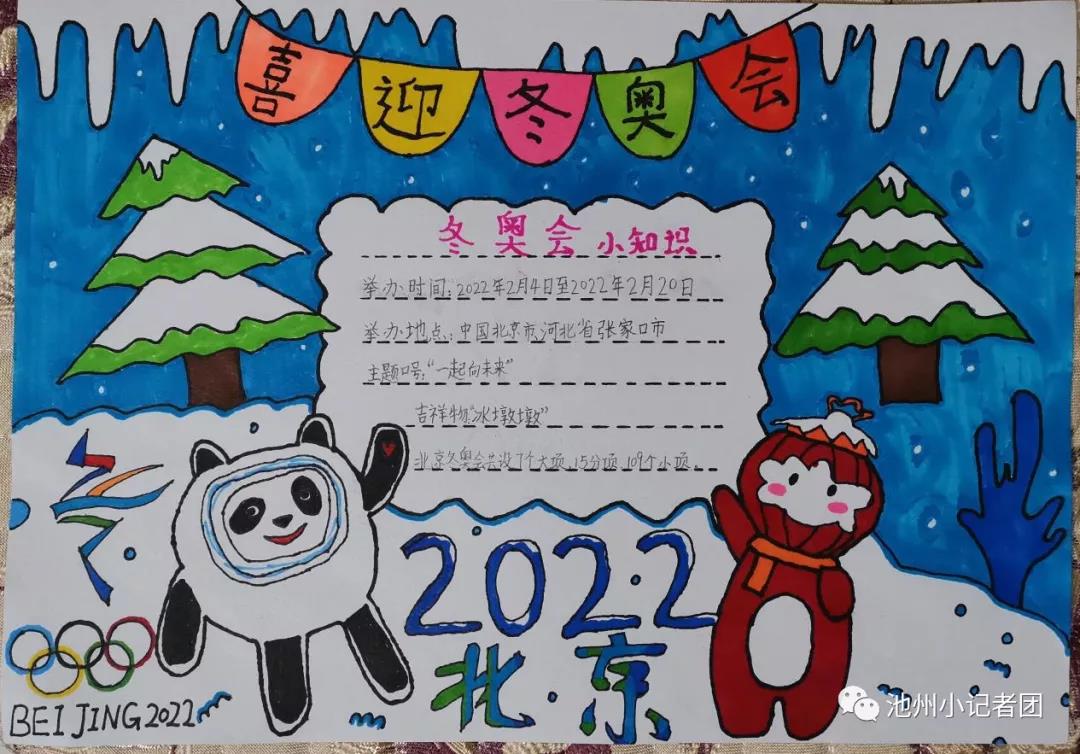 喜迎冬奥会
冬奥会小知识
举办时间：2022年2月4日至2022年2月20日
举办地点：中国北京市、河北省张家口市
主题口号：“一起向未来”
吉祥物：“冰墩墩”
北京冬奥会共设7个大项，15分项，109个小项。
2022
北京
BEIJING2022
池州小记者团